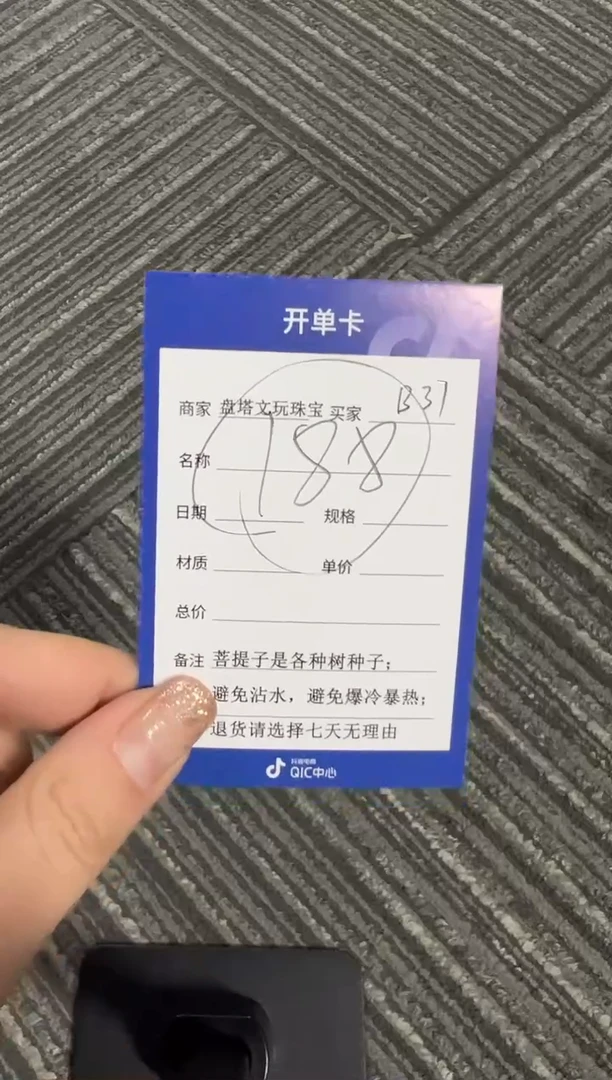 开单卡
商家 盘塔文玩珠宝 买家 B37
188
名称
日期 规格
材质 单价
总价
备注 菩提子是各种树种子；
避免沾水，避免爆冷暴热；
退货请选择七天无理由
抖音电商
QIC中心